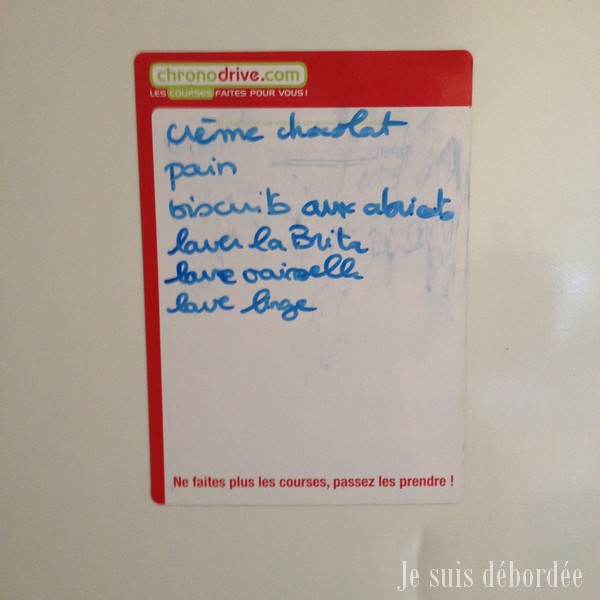 chronodrive.com
LES COURSES FAITES POUR VOUS!
crème chocolat
pain
biscuits aux abricots
laver la Brita
lave vaisselle
lave linge
Ne faites plus les courses, passez les prendre !
Je suis débordée